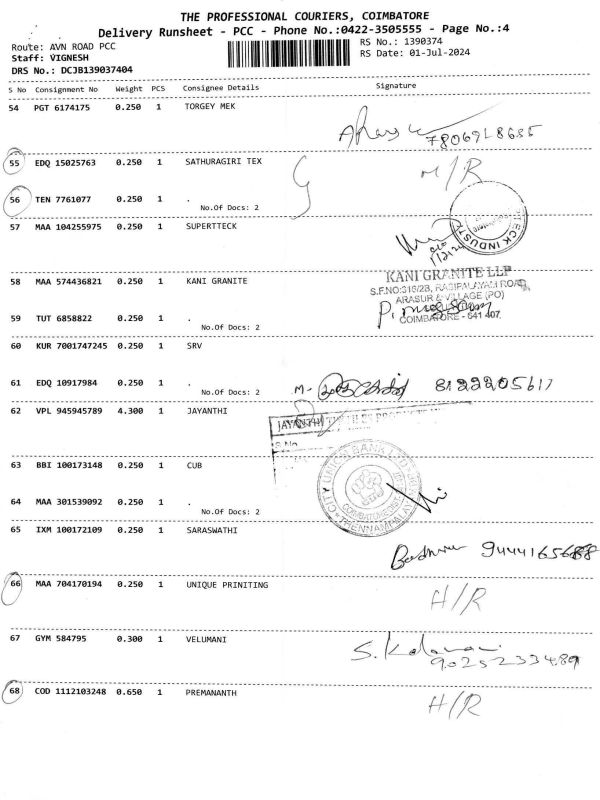 THE PROFESSIONAL COURIERS, COIMBATORE
Delivery Runsheet - PCC - Phone No.:0422-3505555 - Page No.:4
Route: AVN ROAD PCC
Staff: VIGNESH
DRS No.: DCJB139037404
RS No.: 1390374
RS Date: 01-Jul-2024
S No Consignment No Weight PCS Consignee Details Signature
54 PGT 6174175 0.250 1 TORGEY MEK
55 EDQ 15025763 0.250 1 SATHURAGIRI TEX
56 TEN 7761077 0.250 1 .
No.Of Docs: 2
57 MAA 104255975 0.250 1 SUPERTTECK
TECK INDUSTRY
58 MAA 574436821 0.250 1 KANI GRANITE
KANI GRANITE LLP
S.F.NO:316/2B, RASIPALAYAM ROAD,
ARASUR VILLAGE (PO)
COIMBATORE - 641 407.
59 TUT 6858822 0.250 1 .
No.Of Docs: 2
60 KUR 7001747245 0.250 1 SRV
61 EDQ 10917984 0.250 1 .
No.Of Docs: 2
8122205617
62 VPL 945945789 4.300 1 JAYANTHI
JAYANTHI
S.No
63 BBI 100173148 0.250 1 CUB
CITY UNION BANK LTD
COIMBATORE
THENNAMPALAYAM
64 MAA 301539092 0.250 1 .
No.Of Docs: 2
65 IXM 100172109 0.250 1 SARASWATHI
66 MAA 704170194 0.250 1 UNIQUE PRINITING
H/R
67 GYM 584795 0.300 1 VELUMANI
9025233489
68 COD 1112103248 0.650 1 PREMANANTH
H/R